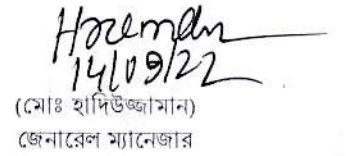 14/09/22
(মোঃ হাদিউজ্জামান)
জেনারেল ম্যানেজার